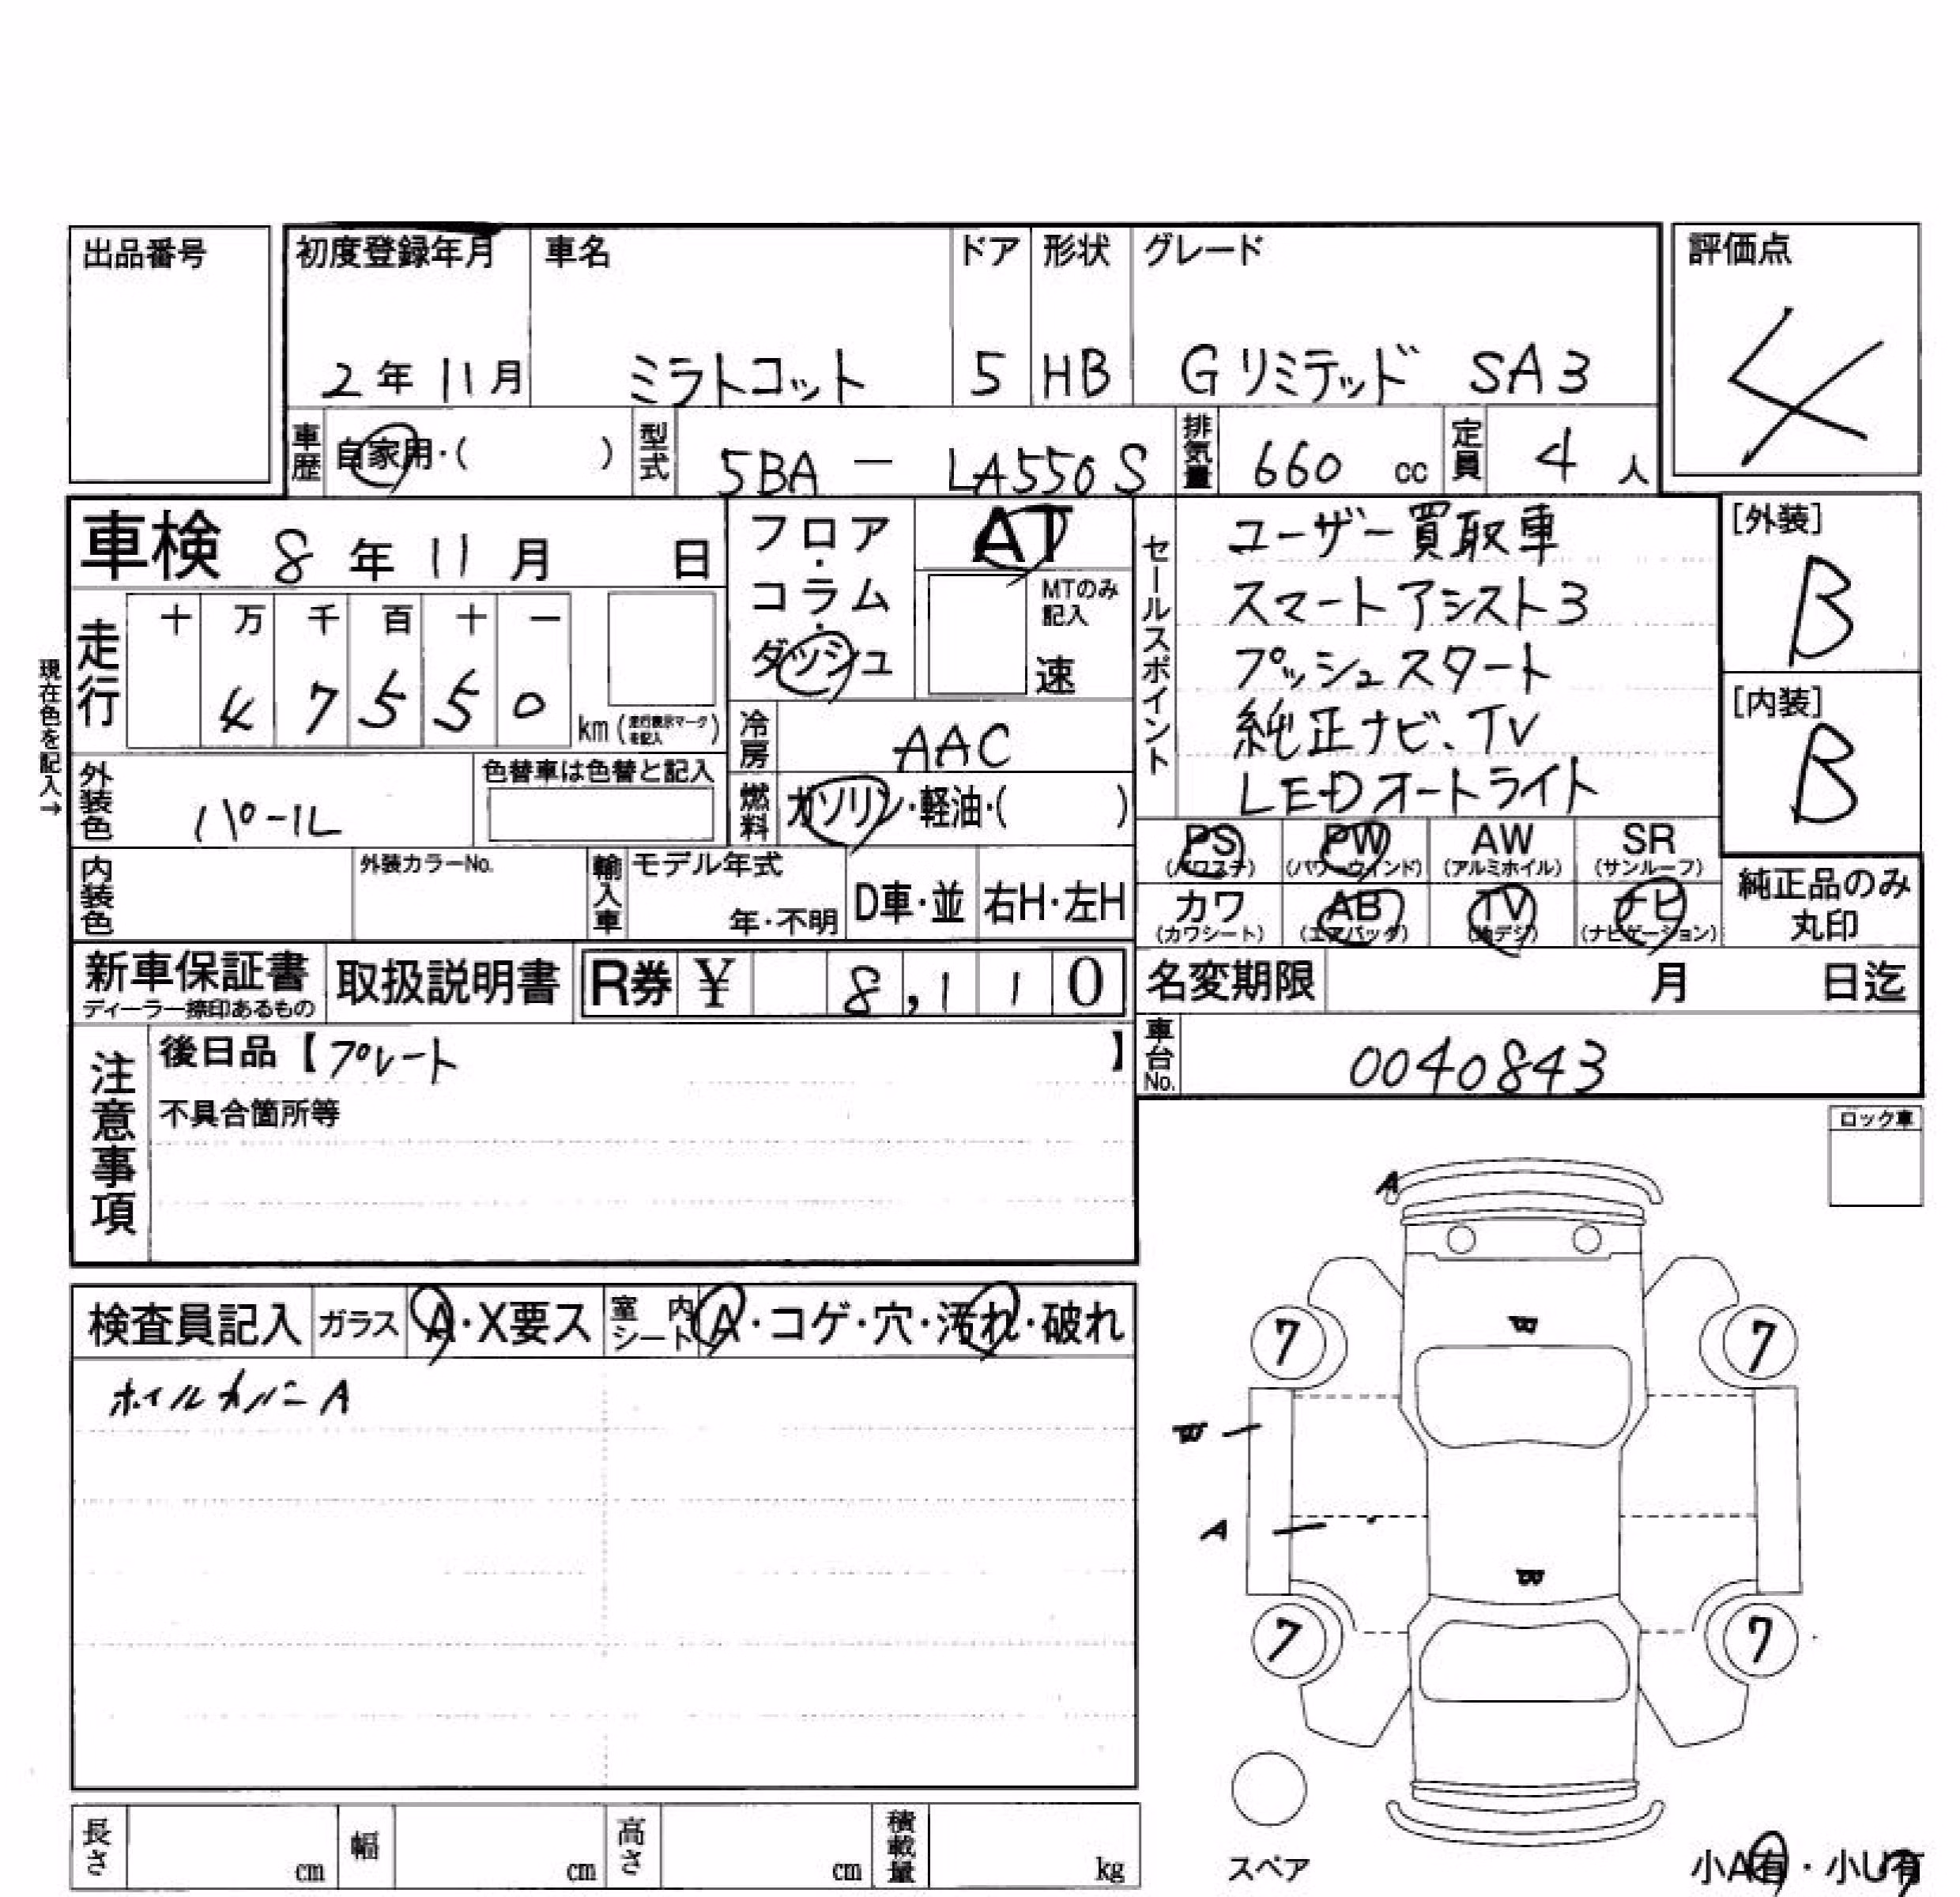 出品番号
初度登録年月 車名 ドア 形状 グレード 評価点
2年11月 ミラトコット 5 HB Gリミテッド SA3 4
車歴 自家用・( ) 型式 5BA - LA550S 排気量 660 cc 定員 4 人
車検 8年11月 日 フロア・コラム・ダッシュ AT
MTのみ記入 速
現在色を記入→
走行 十 万 千 百 十 一
4 7 5 5 0 km (走行表示マークを記入)
冷房 AAC
外装色 パール 色替車は色替と記入 燃料 ガソリン・軽油・( )
内装色 外装カラーNo. 輸入車 モデル年式 年・不明 D車・並 右H・左H
セールスポイント
ユーザー買取車
スマートアシスト3
プッシュスタート
純正ナビ、TV
LEDオートライト
[外装] B
[内装] B
PS (パワステ) PW (パワーウィンド) AW (アルミホイル) SR (サンルーフ)
カワ (カワシート) AB (エアバッグ) TV (地デジ) ナビ (ナビゲーション)
純正品のみ丸印
新車保証書 ディーラー捺印あるもの 取扱説明書 R券 ¥ 8,110
名変期限 月 日迄
車台No. 0040843
注意事項
後日品【プレート 】
不具合箇所等
ロック車
検査員記入 ガラス A・X要ス 室内シート A・コゲ・穴・汚れ・破れ
ホイルカバーA
A
7 7
A
7 7
スペア
小A有・小U有
長さ cm 幅 cm 高さ cm 積載量 kg